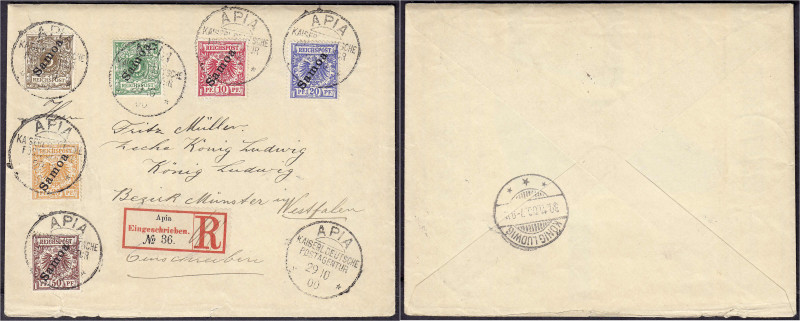 APIA
KAISERL. DEUTSCHE
Samoa
REICHSPOST
APIA
Samoa
REICHSPOST
APIA
REICHSPOST
Samoa
10 PF. 10
APIA
REICHSPOST
Samoa
20 PF. 20
Herrn
Fritz Müller.
Zeche König Ludwig
König Ludwig
Bezirk Münster in
Westfalen
APIA
Samoa
APIA
REICHSPOST
Samoa
50 PF. 50
Apia
Eingeschrieben.
№ 36.
R
Einschreiben
APIA
KAISERL. DEUTSCHE
POSTAGENTUR
29 10
00
*
KÖNIG LUDWIG